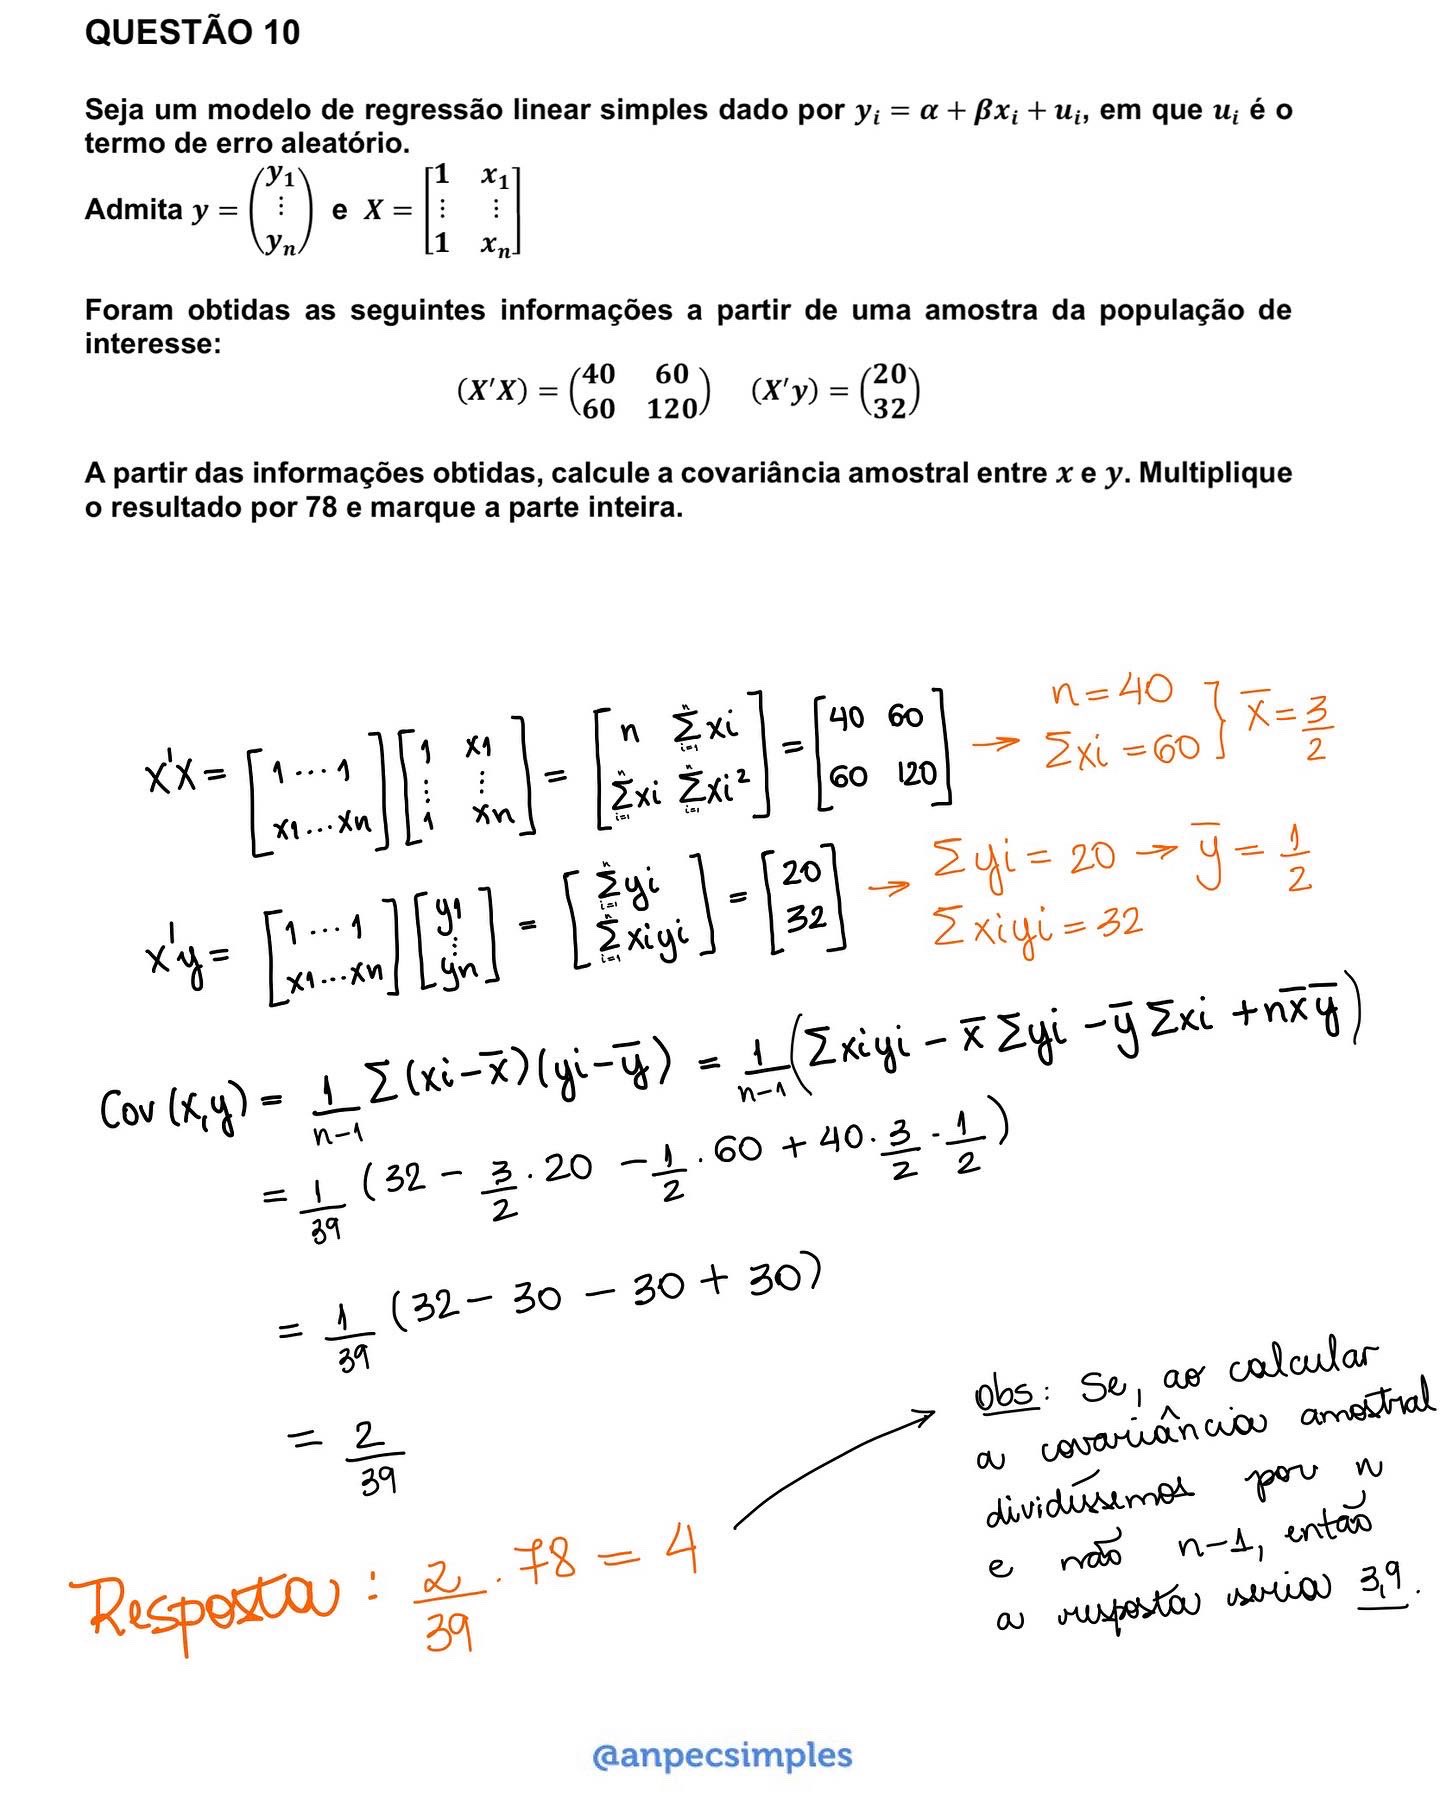 QUESTÃO 10
Seja um modelo de regressão linear simples dado por yᵢ = α + βxᵢ + uᵢ, em que uᵢ é o
termo de erro aleatório.
Admita y = (y₁ ⋮ yₙ) e X = [1 x₁ ⋮ ⋮ 1 xₙ]
Foram obtidas as seguintes informações a partir de uma amostra da população de
interesse:
(X′X) = (40 60 60 120) (X′y) = (20 32)
A partir das informações obtidas, calcule a covariância amostral entre x e y. Multiplique
o resultado por 78 e marque a parte inteira.
X'X = [1 ... 1 x1 ... xn] [1 x1 ⋮ ⋮ 1 xn] = [n Σⁿᵢ₌₁ xi Σⁿᵢ₌₁ xi Σⁿᵢ₌₁ xi²] = [40 60 60 120] → n = 40 Σxi = 60 } x̅ = 3/2
X'y = [1 ... 1 x1 ... xn] [y1 ⋮ yn] = [Σⁿᵢ₌₁ yi Σⁿᵢ₌₁ xiyi] = [20 32] → Σyi = 20 → y̅ = 1/2 Σxiyi = 32
Cov (x,y) = 1/(n-1) Σ (xi - x̅)(yi - y̅) = 1/(n-1) (Σxiyi - x̅ Σyi - y̅ Σxi + nx̅y̅)
= 1/39 (32 - 3/2 · 20 - 1/2 · 60 + 40 · 3/2 · 1/2)
= 1/39 (32 - 30 - 30 + 30)
= 2/39
Resposta : 2/39 · 78 = 4
→ Obs: Se, ao calcular
a covariância amostral
dividíssemos por n
e não n-1, então
a resposta seria 3,9.
@anpecsimples